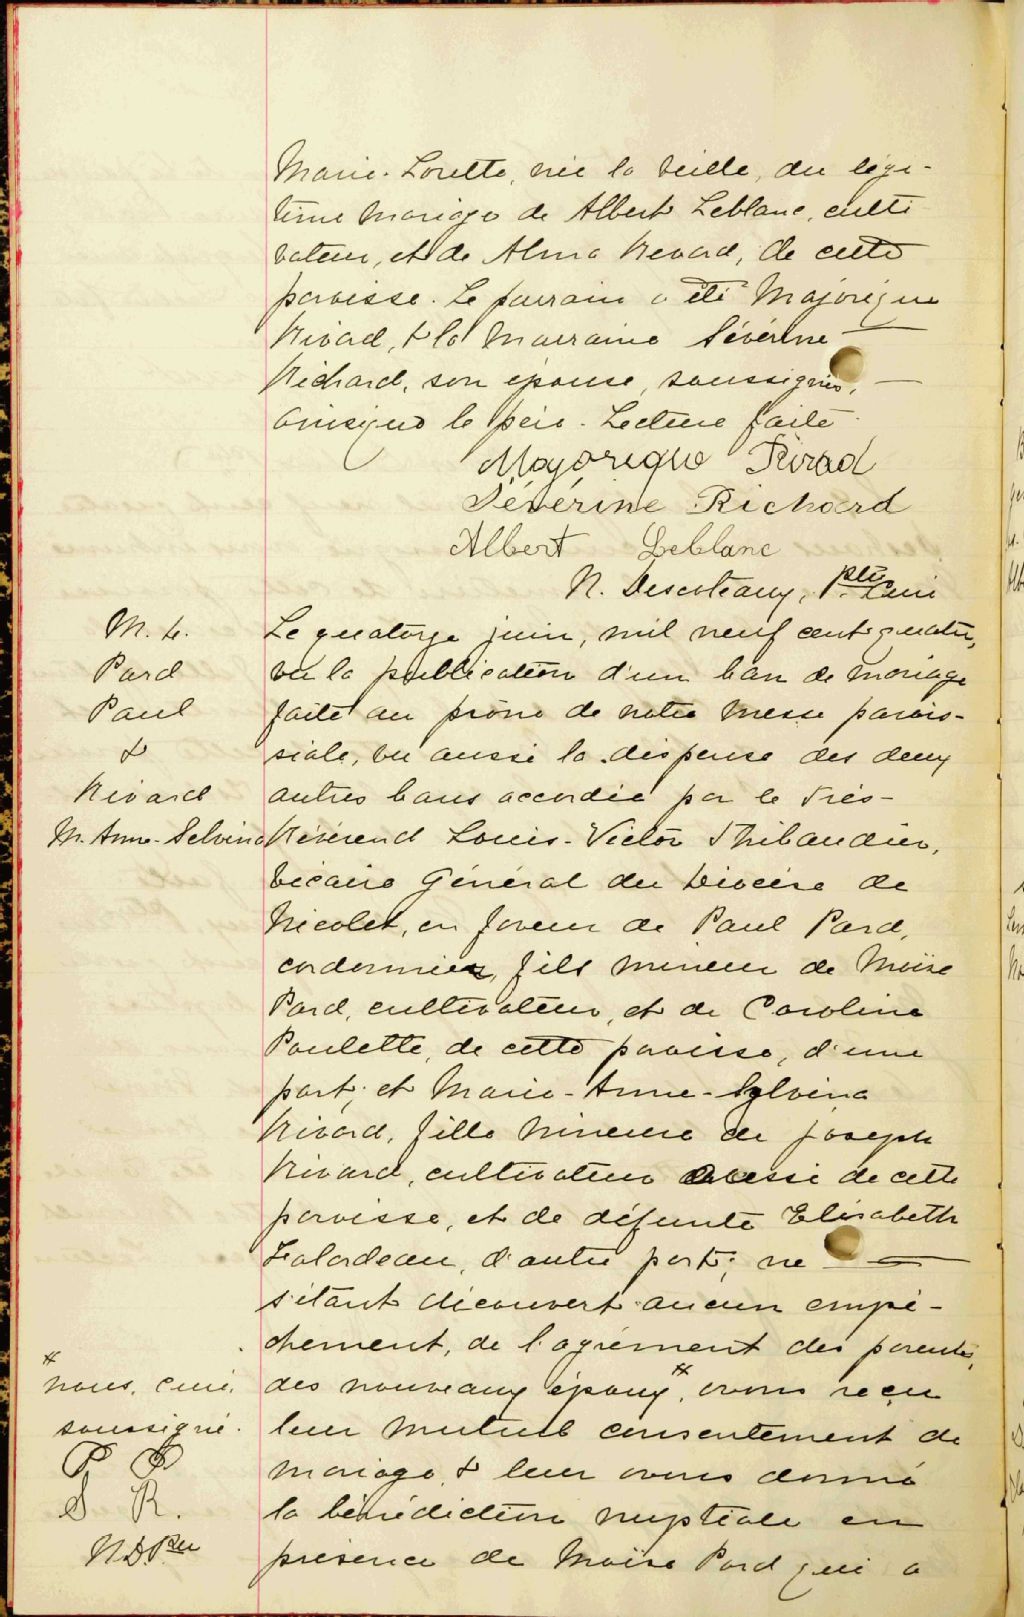 Marie-Lorette, née la veille, du légi-
time mariage de Albert Leblanc, culti
vateur, et de Alma Rivard, de cette
paroisse. Le parrain a été Majorique
Rivard, & la marraine Séverine
Richard, son épouse, soussignés,
ainsique le père. Lecture faite.
Majorique Rivard
Sévérine Richard
Albert Leblanc
N. Descoteaux, Ptre Curé
M. 4.
Pard
Paul
&
Rivard
M. Anne-Selvina
Le quatorze juin, mil neuf cent quatre,
vu la publication d'un ban de mariage
faite au prône de notre messe parois-
siale, vu aussi la dispense des deux
autres bans accordée par le Très-
Révérend Louis-Victor Thibaudier,
Vicaire Général du Diocèse de
Nicolet, en faveur de Paul Pard,
cordonnier, fils mineur de Moïse
Pard, cultivateur, et de Caroline
Paulette, de cette paroisse, d'une
part; et Marie-Anne-Sylvina
Rivard, fille mineure de Joseph
Rivard, cultivateur aussi de cette
paroisse, et de défunte Elisabeth
Falardeau, d'autre part; ne
s'étant découvert aucun empê-
chement, de l'agrément des parents,
des nouveaux époux #, avons reçu
leur mutuel consentement de
mariage & leur avons donné
la bénédiction nuptiale en
présence de Moïse Pard qui a
#
nous, curé,
soussigné.
P P
S R.
N.D. Ptre